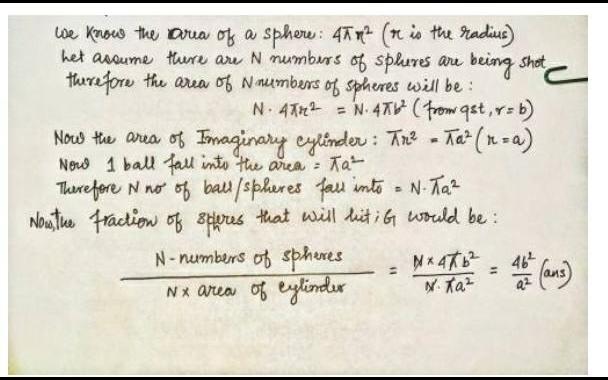 We know the area of a sphere: 4πr² (r is the radius)
Let assume there are N numbers of spheres are being shot
therefore the area of N numbers of spheres will be :
N. 4πr² = N. 4πb² (from qst, r = b)
Now the area of Imaginary cylinder : πr² = πa² (r = a)
Now 1 ball fall into the area = πa²
Therefore N no of ball/spheres fall into = N. πa²
Now, the fraction of spheres that will hit iG would be :
N-numbers of spheres / N x area of cylinder = N x 4πb² / N. πa² = 4b² / a² (ans)